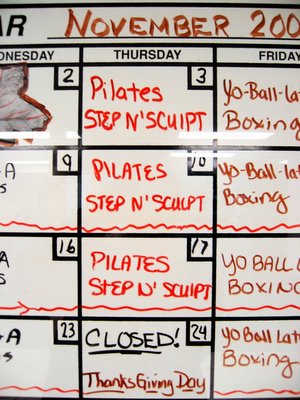 AR NOVEMBER 200
DNESDAY THURSDAY FRIDAY
2 Pilates 3 Yo-Ball-Lat
STEP N' SCULPT Boxing
9 PILATES 10 Yo-Ball-Lat
A STEP N' SCULPT Boxing
s
16 PILATES 17 YO BALL L
A STEP N' SCULPT BOXING
s
23 CLOSED! 24 Yo Ball Lat
A ThanksGiving Day Boxing
s